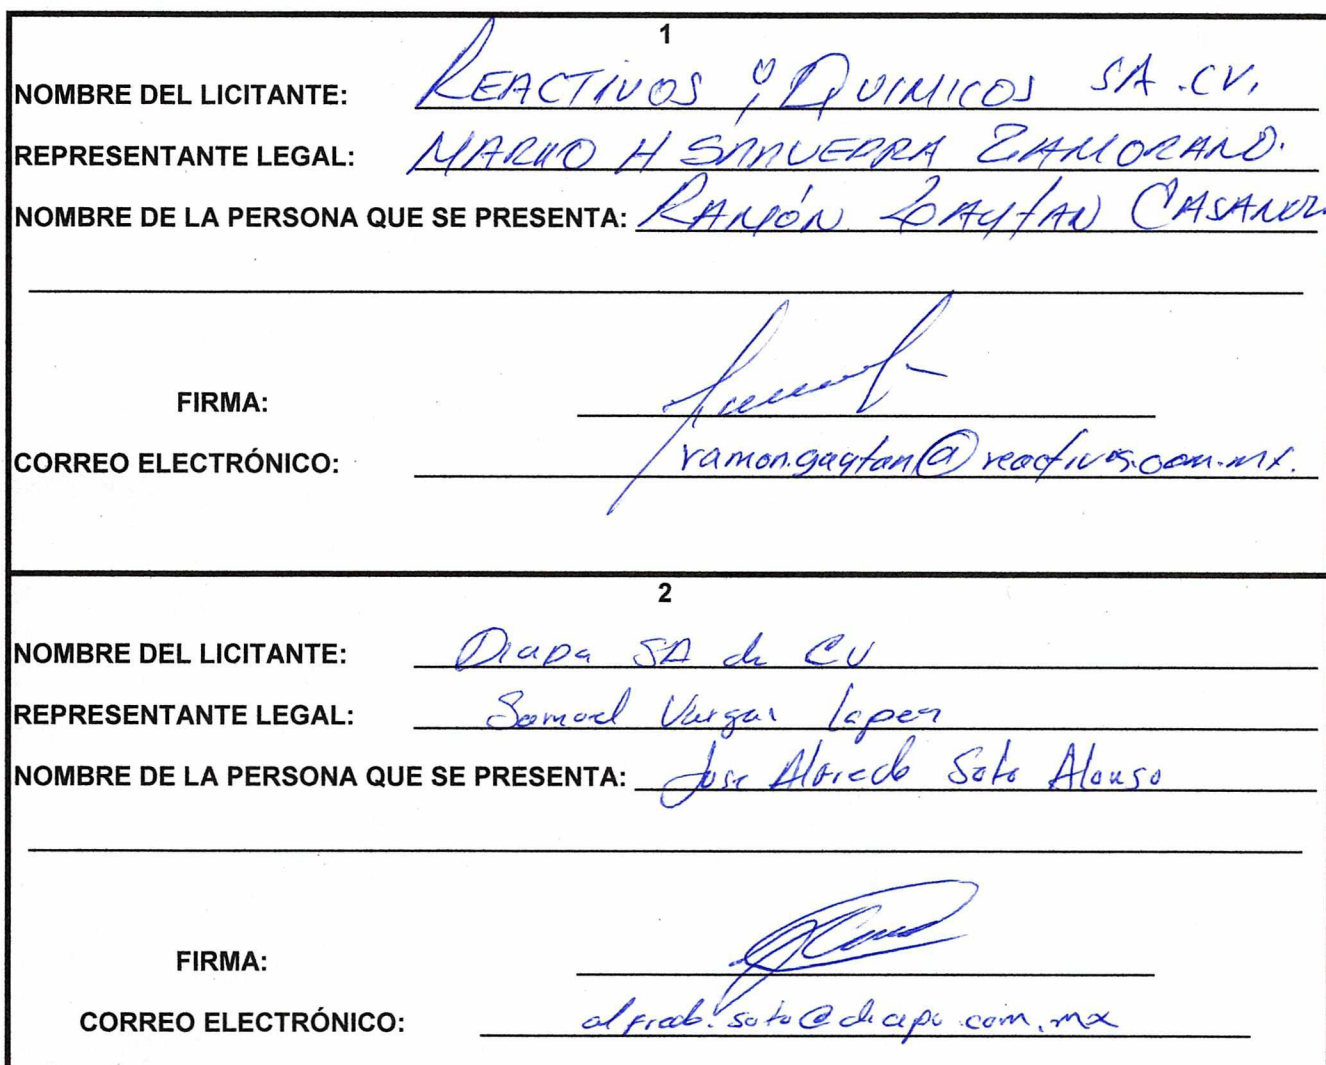 1
NOMBRE DEL LICITANTE: REACTIVOS Y QUIMICOS SA .CV.
REPRESENTANTE LEGAL: MARKO H SAAVEDRA ZAMORANO.
NOMBRE DE LA PERSONA QUE SE PRESENTA: RAMÓN GAYTAN
FIRMA:
CORREO ELECTRÓNICO: ramon.gaytan@reactivos.com.mx.
2
NOMBRE DEL LICITANTE: Diapa SA de CV
REPRESENTANTE LEGAL: Samuel Vargas Lopez
NOMBRE DE LA PERSONA QUE SE PRESENTA: Jose Alfredo Soto Alonso
FIRMA:
CORREO ELECTRÓNICO: alfredo.soto@diapa.com.mx